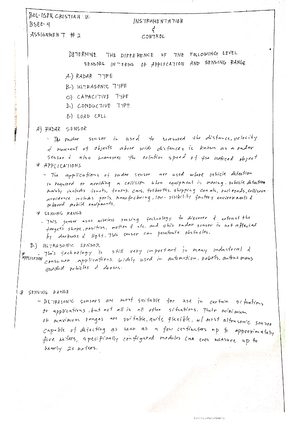 BOL-IGPA, CRISTIAN V.
BSEE-4
ASSIGNMENT # 2
INSTRUMENTATION
&
CONTROL
DETERMINE THE DIFFERENCE OF THE FOLLOWING LEVEL
SENSING IN TERMS OF APPLICATION AND SENSING RANGE
A) RADAR TYPE
B) ULTRASONIC TYPE
C) CAPACITIVE TYPE
D) CONDUCTIVE TYPE
E) LOAD CELL
A) RADAR SENSOR
- The radar sensor is used to measured the distance, velocity
& movement of objects above wide distances is known as a radar
sensor & also measures the relative speed of the noticed object
* APPLICATIONS
- The applications of radar sensor are used where vehicle detection
is required or avoiding a collision when equipment is moving. vehicle detection
mainly include trucks, cars, shipping
include ports, manufacturing, low-visibility factory environments &
mobile equipments.
* SENSING RANGE
- This sensor uses wireless sensing technology to discover & extract the
targets shape, position, motion & etc. and this radar sensor is not affected
by darkness & light. This sensor can penetrate obstacles.
B.) ULTRASONIC SENSOR
* APPLICATION
- This technology is still very important in many industrial &
consumer applications widely used in automation, robots, autonomous
guided vehicles & drones.
* SENSING RANGE
- Ultrasonic sensors are most suitable for use in certain situations
to applications, but not all in other situations. Their minimum
or maximum ranges are suitable, quite flexible, w/ most ultrasonic sensor
capable of detecting as near as a few centimeters up to approximately
five meters, specifically configured modules can even measure up to
nearly 20 meters.